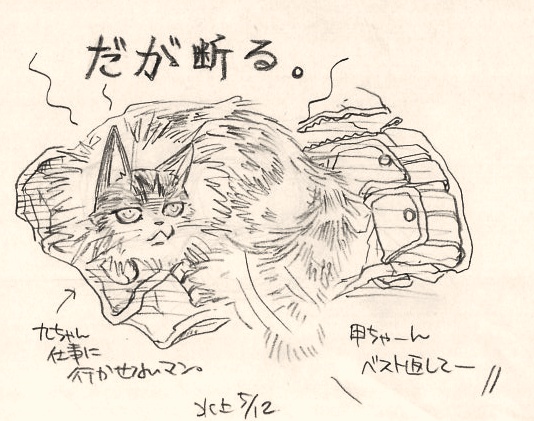 だが断る。
九ちゃん
仕事に
行かせないマン。
甲ちゃーん
ベスト返してー
水上 5/12